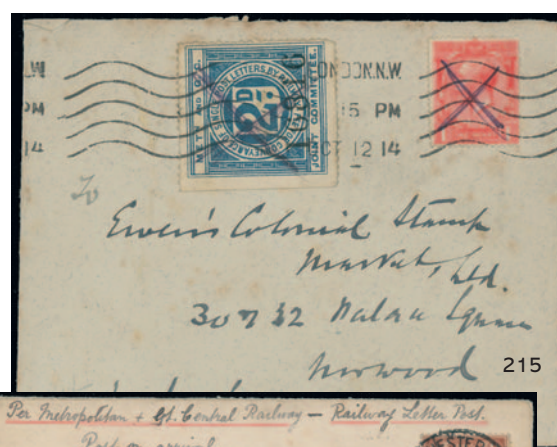 .W
LONDON.N.W.
PM
15 PM
14
OCT 12 14
MET. AND G.C.
CONVEYANCE OF SINGLE POST LETTERS BY RAILWAY
2D
JOINT COMMITTEE.
To
Ewen's Colonial Stamp
Market, Ltd.
32
Norwood
215
Per Metropolitan + Gt. Central Railway — Railway Letter Post.
Post on arrival